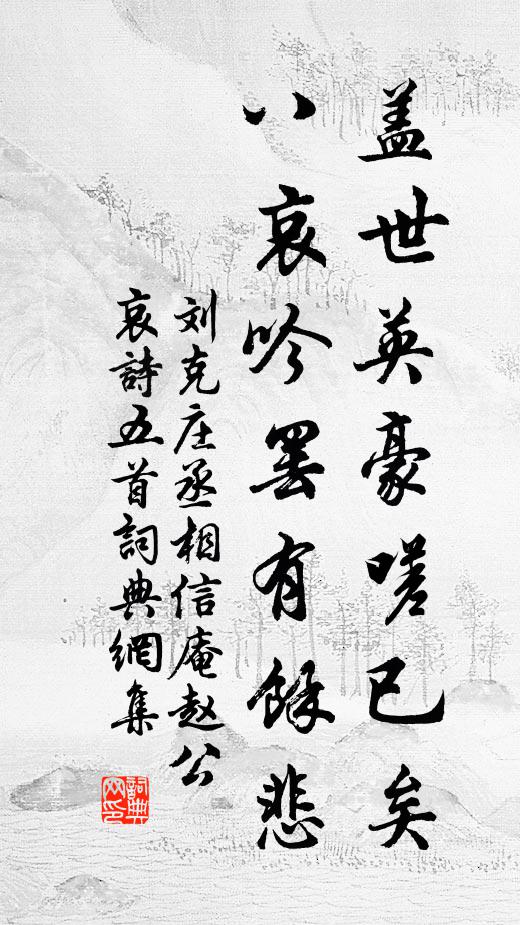 盖世英豪嗟已矣
八哀吟罢有餘悲
刘克庄丞相信庵赵公
哀詩五首詞典網集
詞典网印